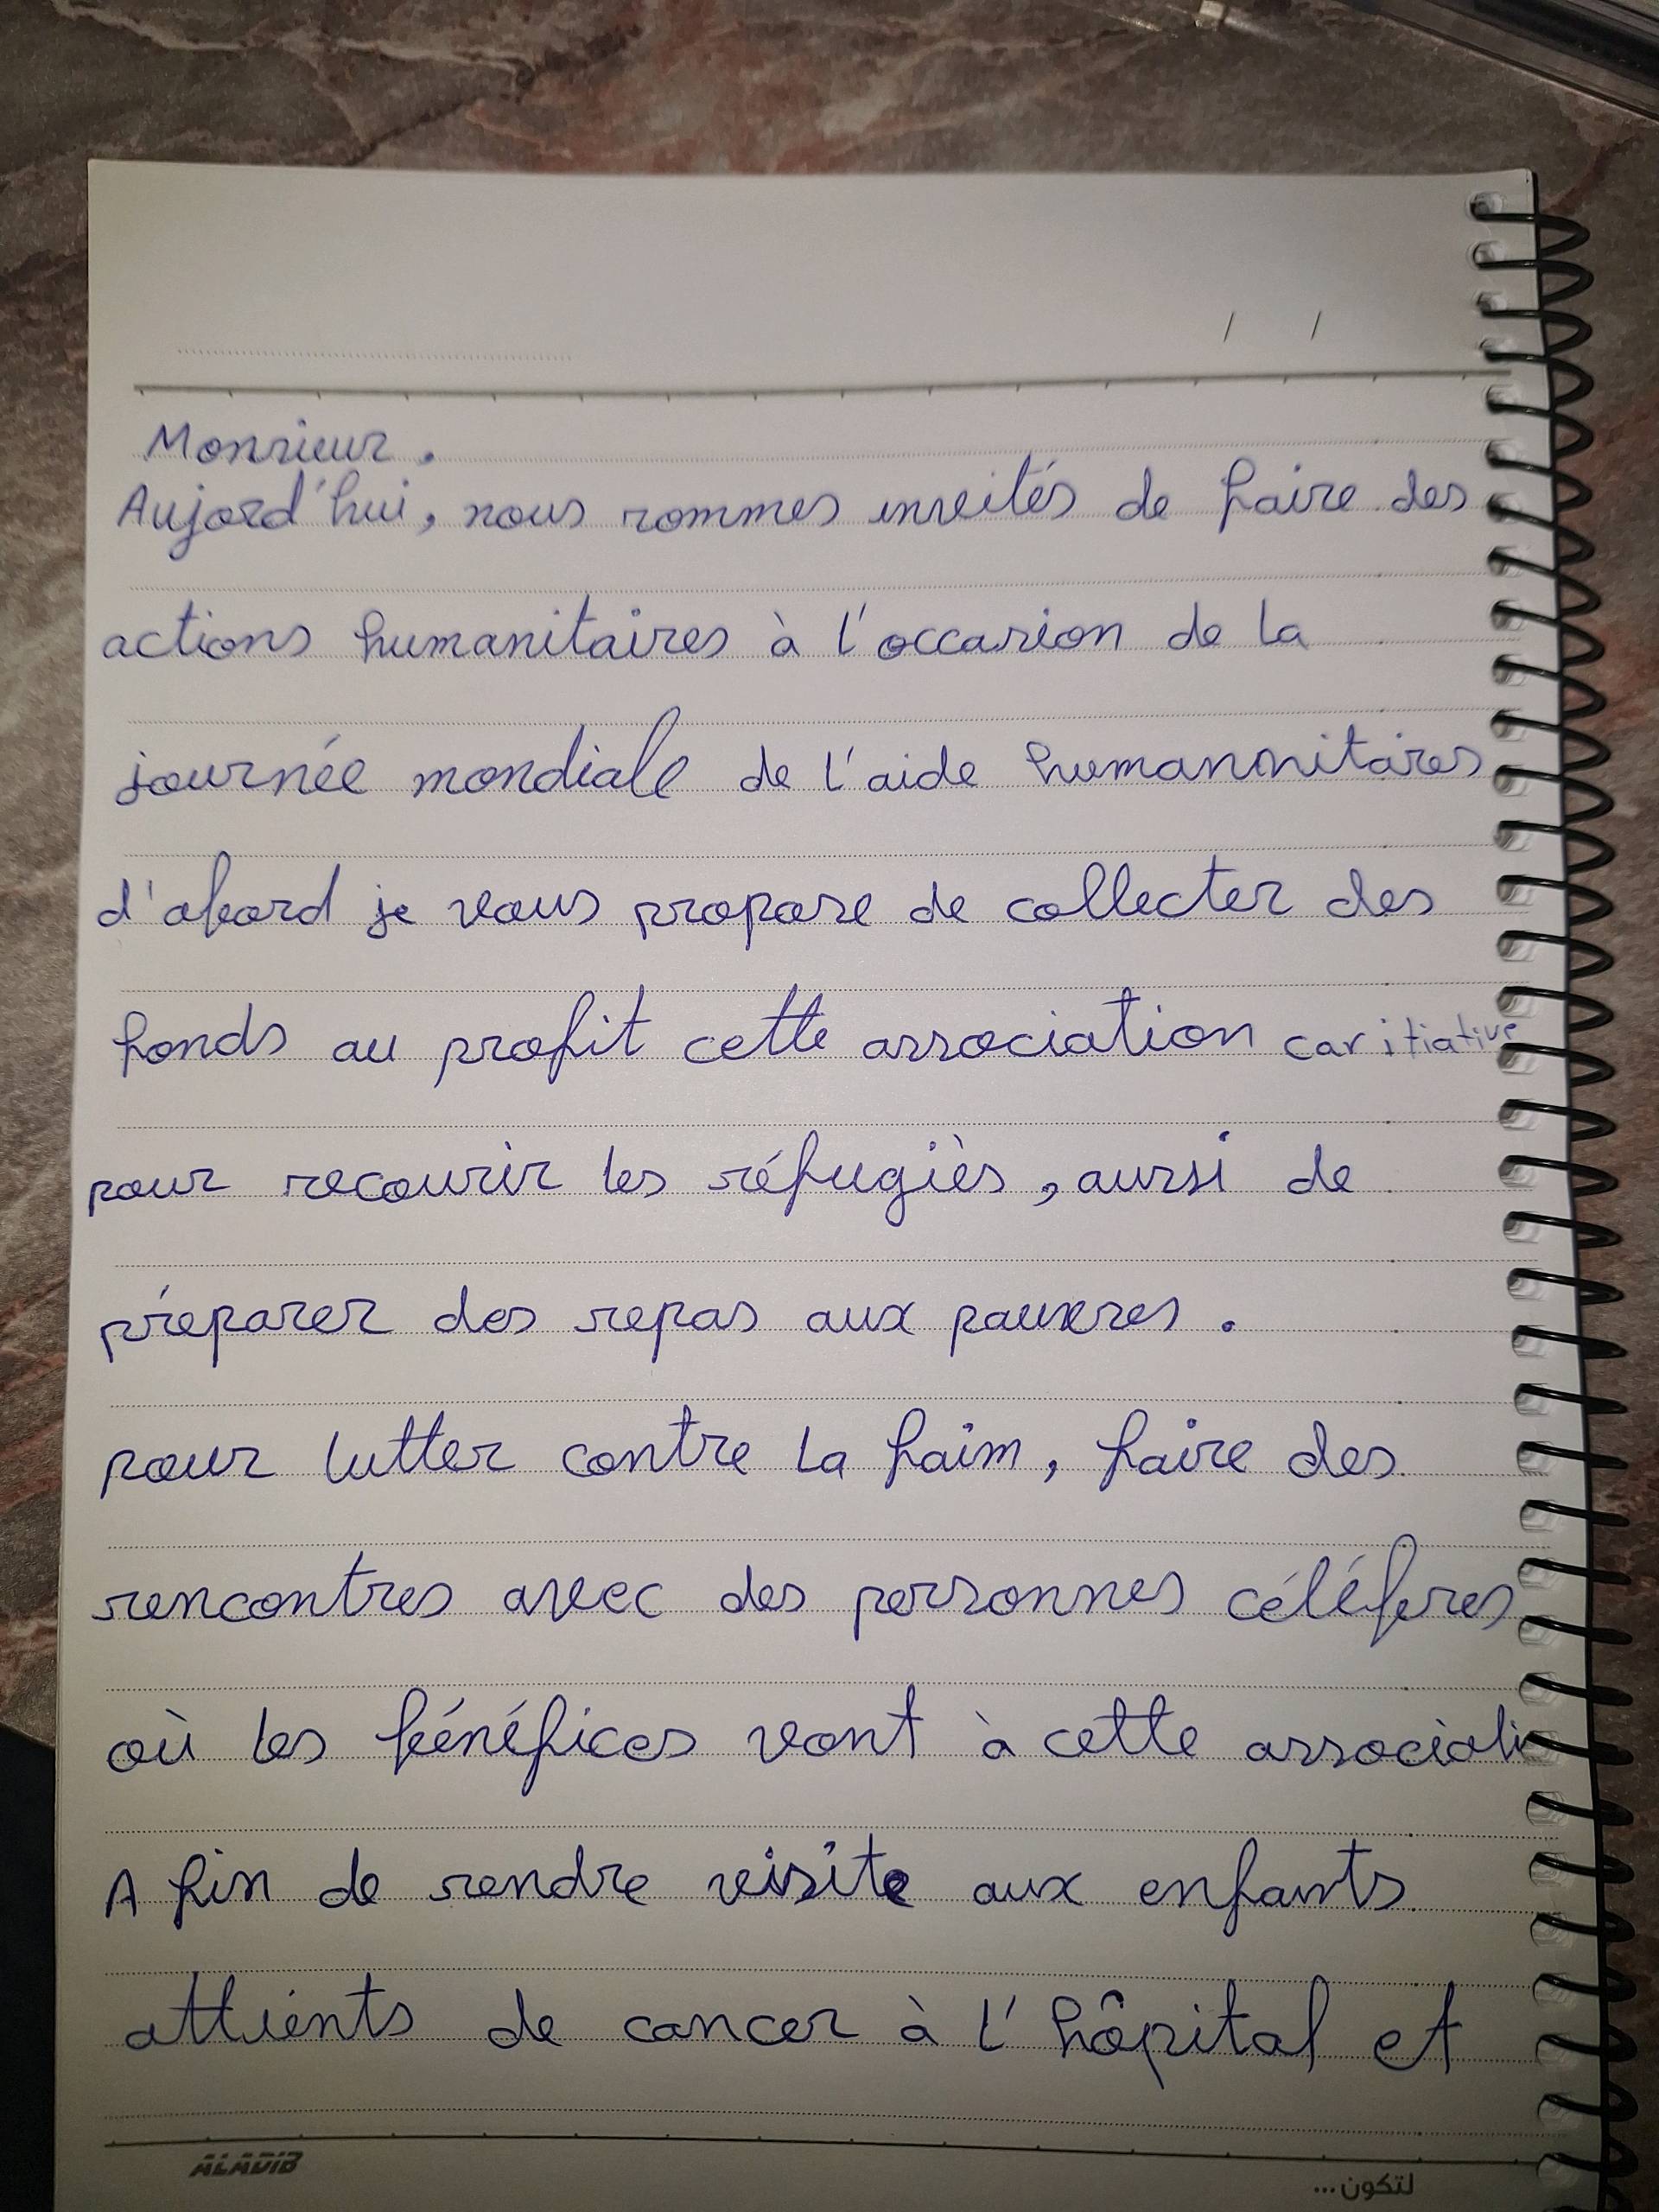 / /
Monsieur.
Aujord'hui, nous sommes inveités de faire des
actions humanitaires à l'occasion de la
journée mondiale de l'aide humanonitaires
d'abord je vous propose de collecter des
fonds au profit cette association caritiative
pour recourir les réfugiès, aussi de
préparer des repas aux pauvres.
pour lutter contre la faim, faire des
rencontres avec des personnes célébres
où les bénéfices vont à cette
A fin de rendre visite aux enfants
attients de cancer à l'hôpital et
ALADIB
لتكون...